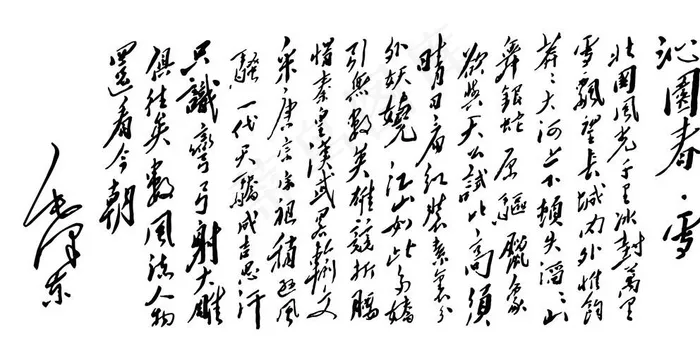 沁園春·雪
北國風光千里冰封萬里
雪飄望長城内外惟餘
莽々大河上下頓失滔々山
舞銀蛇原驅臘象
欲與天公試比高須
晴日看紅裝素裹分
外妖嬈江山如此多嬌
引無數英雄競折腰
惜秦皇漢武略輸文
采唐宗宋祖稍遜風
騷一代天驕成吉思汗
只識彎弓射大雕
俱往矣數風流人物
還看今朝
毛澤東